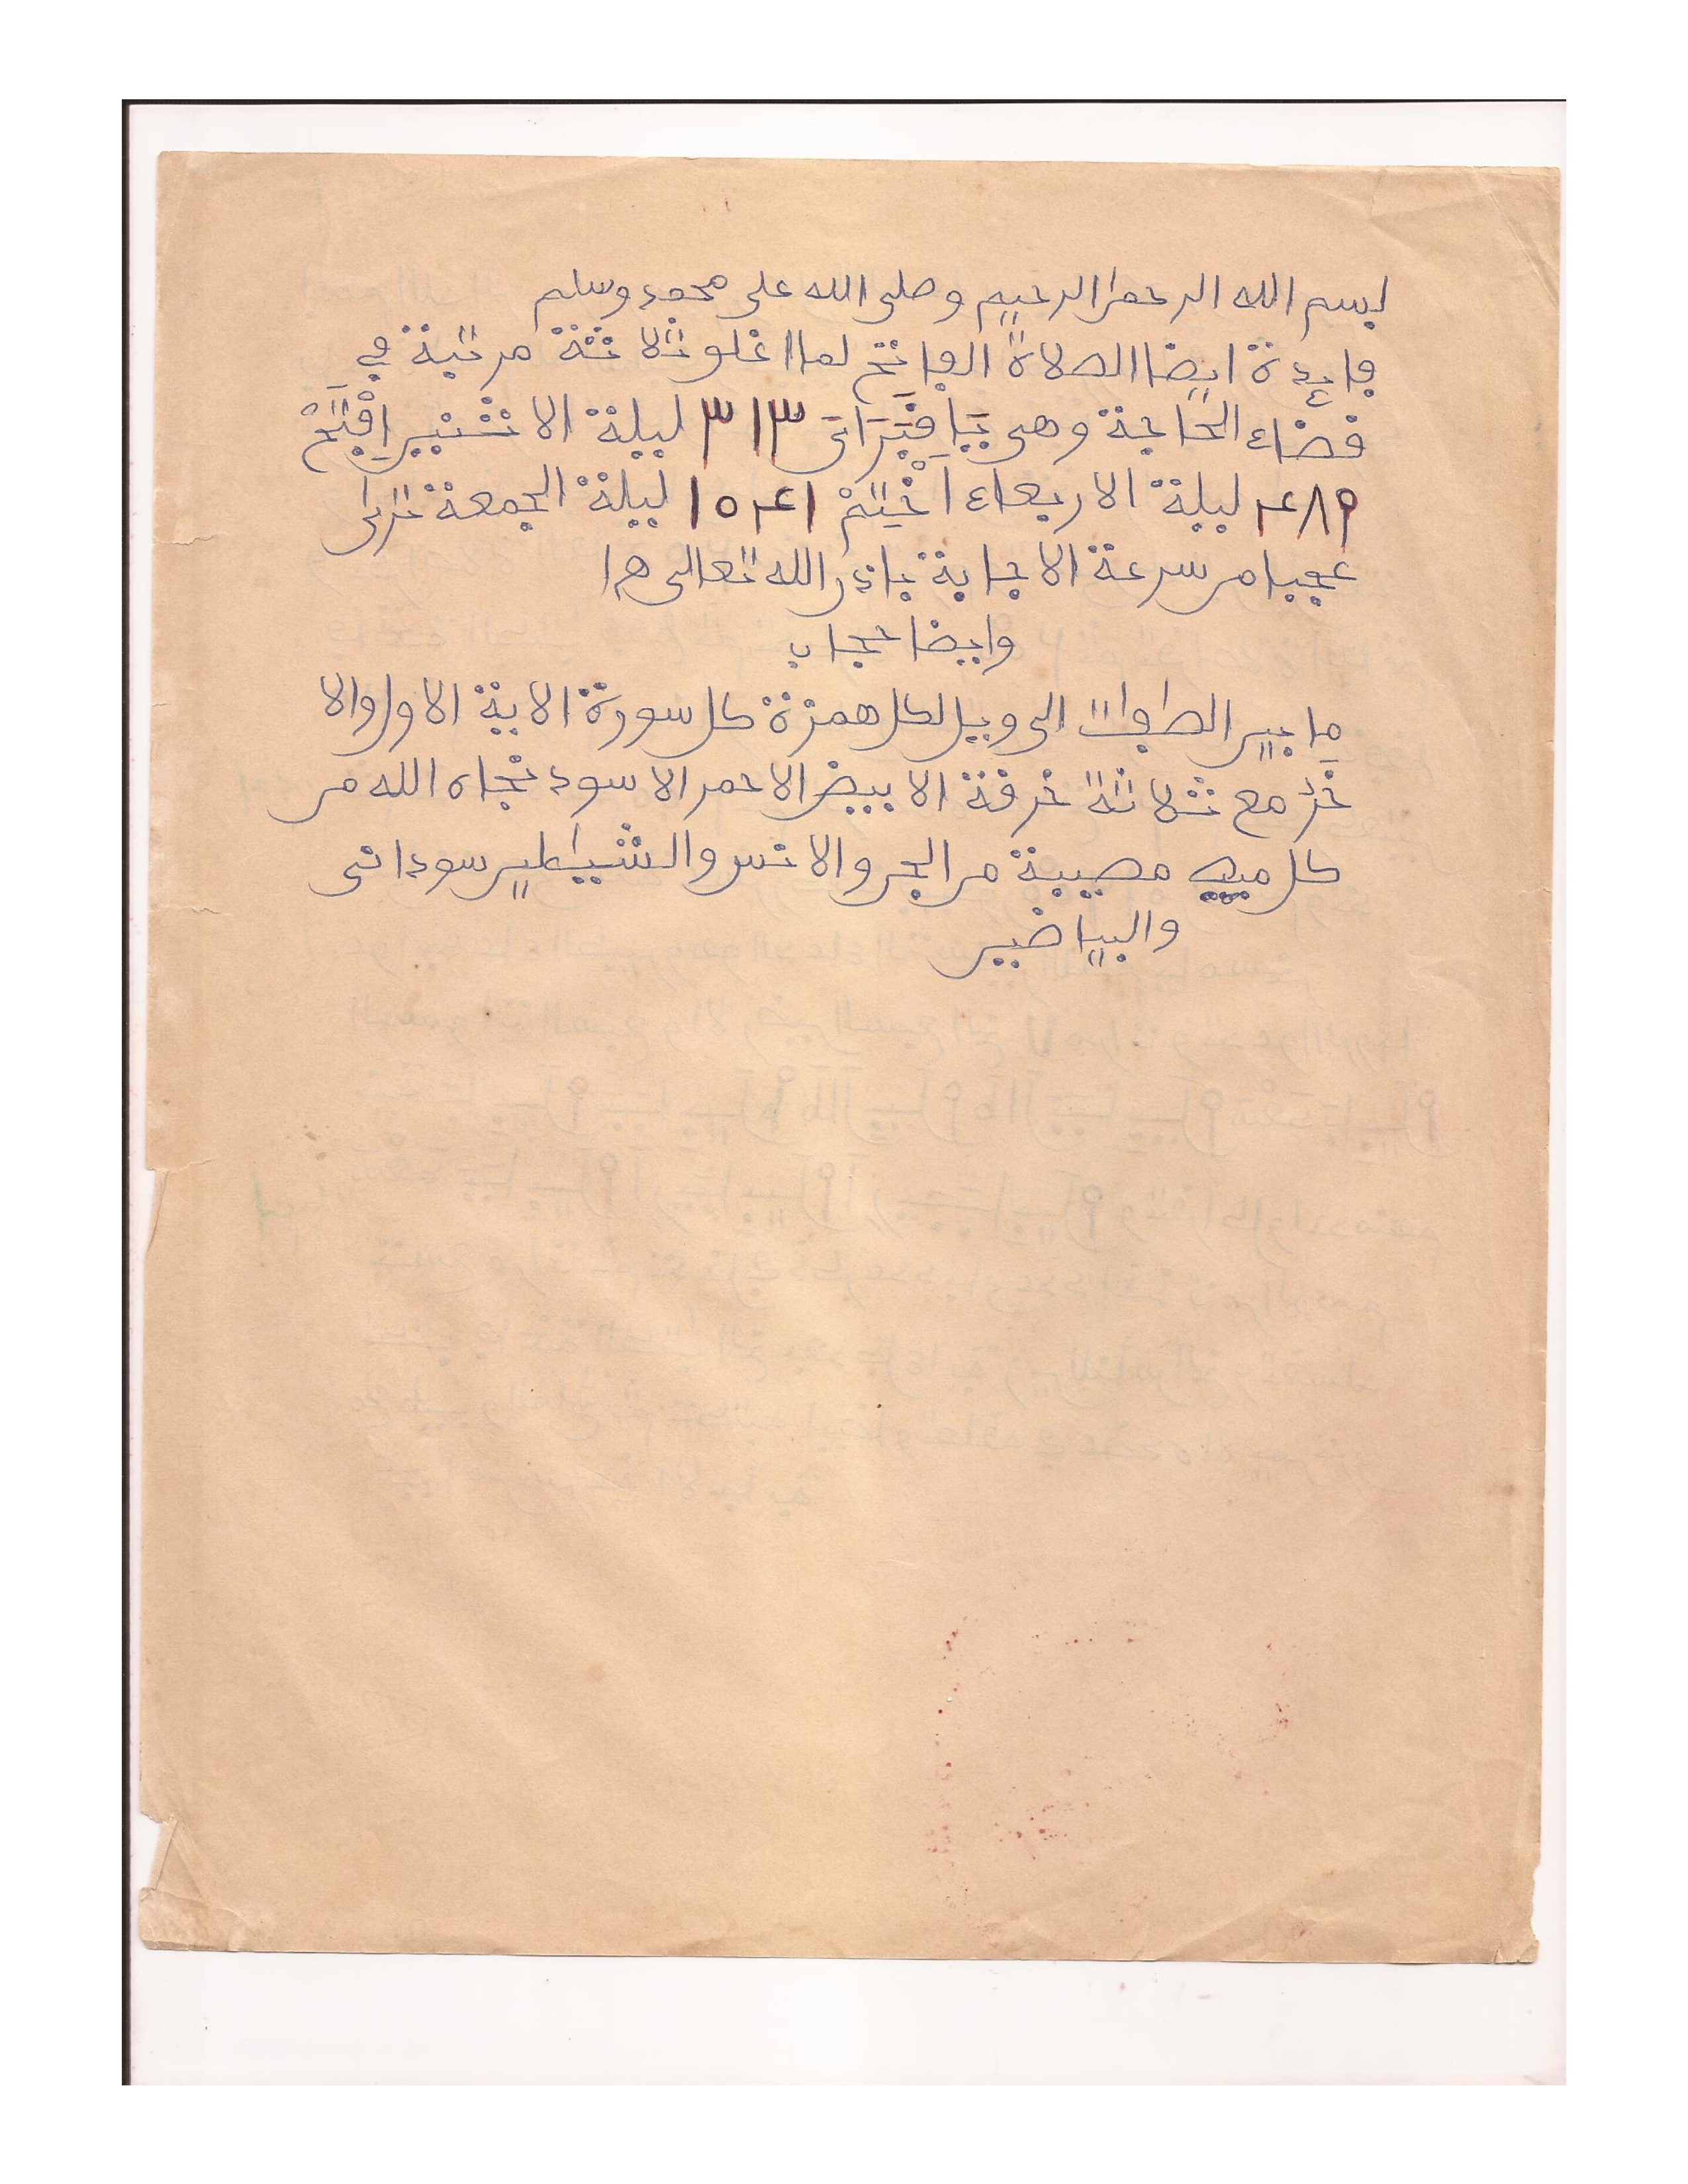 بسم الله الرحمن الرحيم وصلى الله على محمد وسلم
فايدة ايضا الصلاة الفاتح لما اغلو ثلاثة مرتبة في
قضاء الحاجة وهي ٣١٣ ليلة الاثنين افتح
ليلة الاربعاء اختم ليلة الجمعة ترى
عجبا من سرعة الاجابة باذن الله تعالى
وايضا حجاب
ما بين الطوات الى ويل لكل همزة كل سورة الاية الاول والا
خر مع ثلاثة خرفة الابيض الاحمر الاسود نجاه الله من
كل مصيبة من الجن والانس والشيطين سوداني
والبياضين